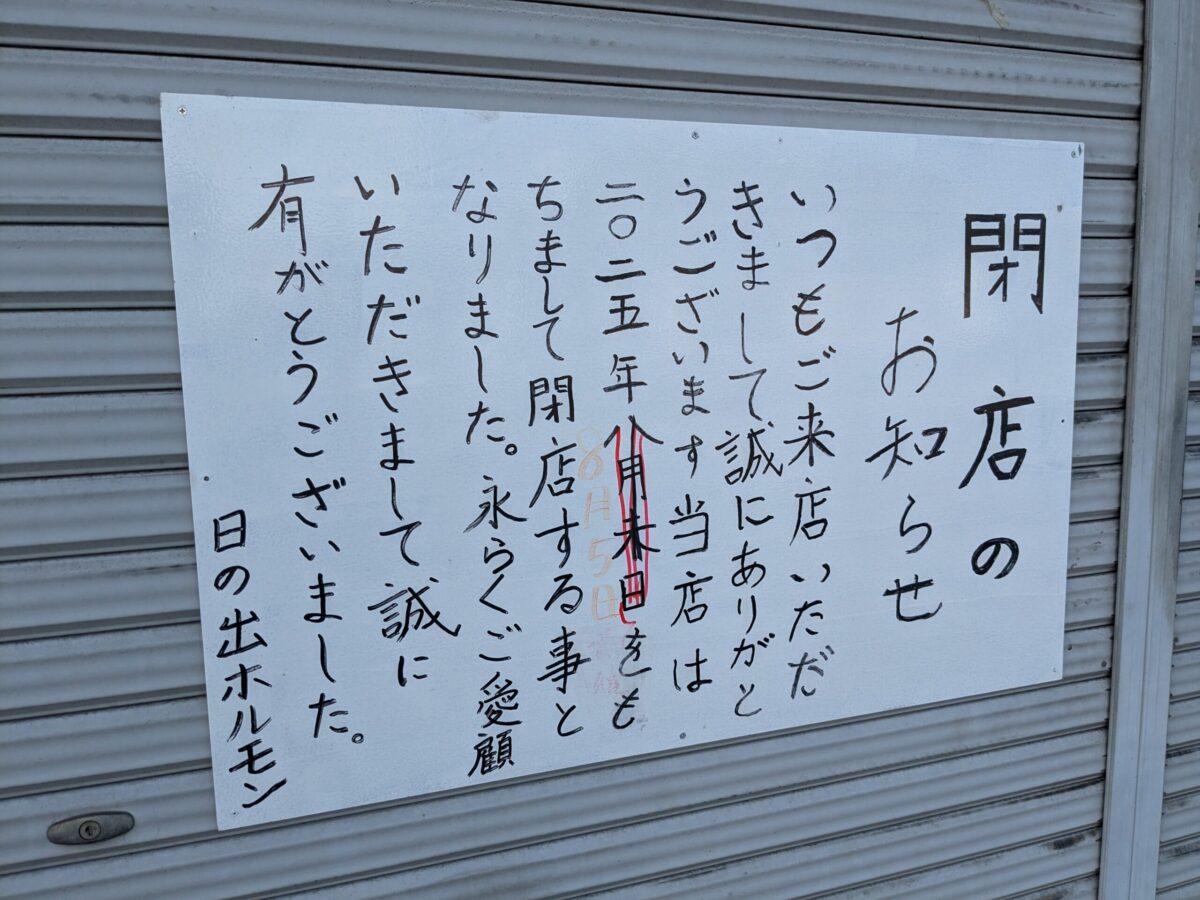 閉店の
お知らせ
いつもご来店いただ
きまして誠にありがと
うございます当店は
二〇二五年八月末日をも
8月5日
ちまして閉店する事と
なりました。永らくご愛顧
いただきまして誠に
有がとうございました。
日の出ホルモン